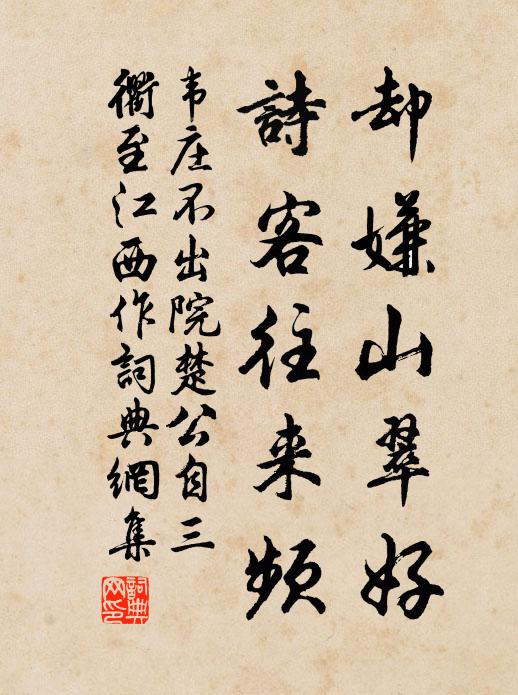 却嫌山翠好
詩客往来頻
韦庄不出院楚公自三
衢至江西作詞典網集
詞典
网印